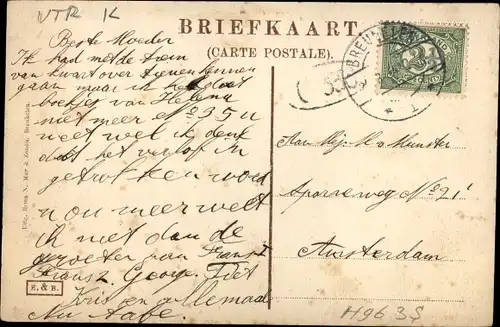 UTR K
BRIEFKAART
(CARTE POSTALE).
BREUKELEN
Beste Moeder
Ik had met de trein
van kwart over tienen kunnen
gaan maar ik
boekjes van Helena
niet meer No 35 u
weet wel ik denk
dat het verlof in
getrokken word
nou meer weet
ik niet dan de
groeten van Frans I
Frans 2. George. Piet
Kris en allemaal
Nu
Aan Mej. H v Munster
Spoorweg No 21
Amsterdam
Uitg. Breuk N. Mur & Zonen, Breukelen.
E. & B.
H963S